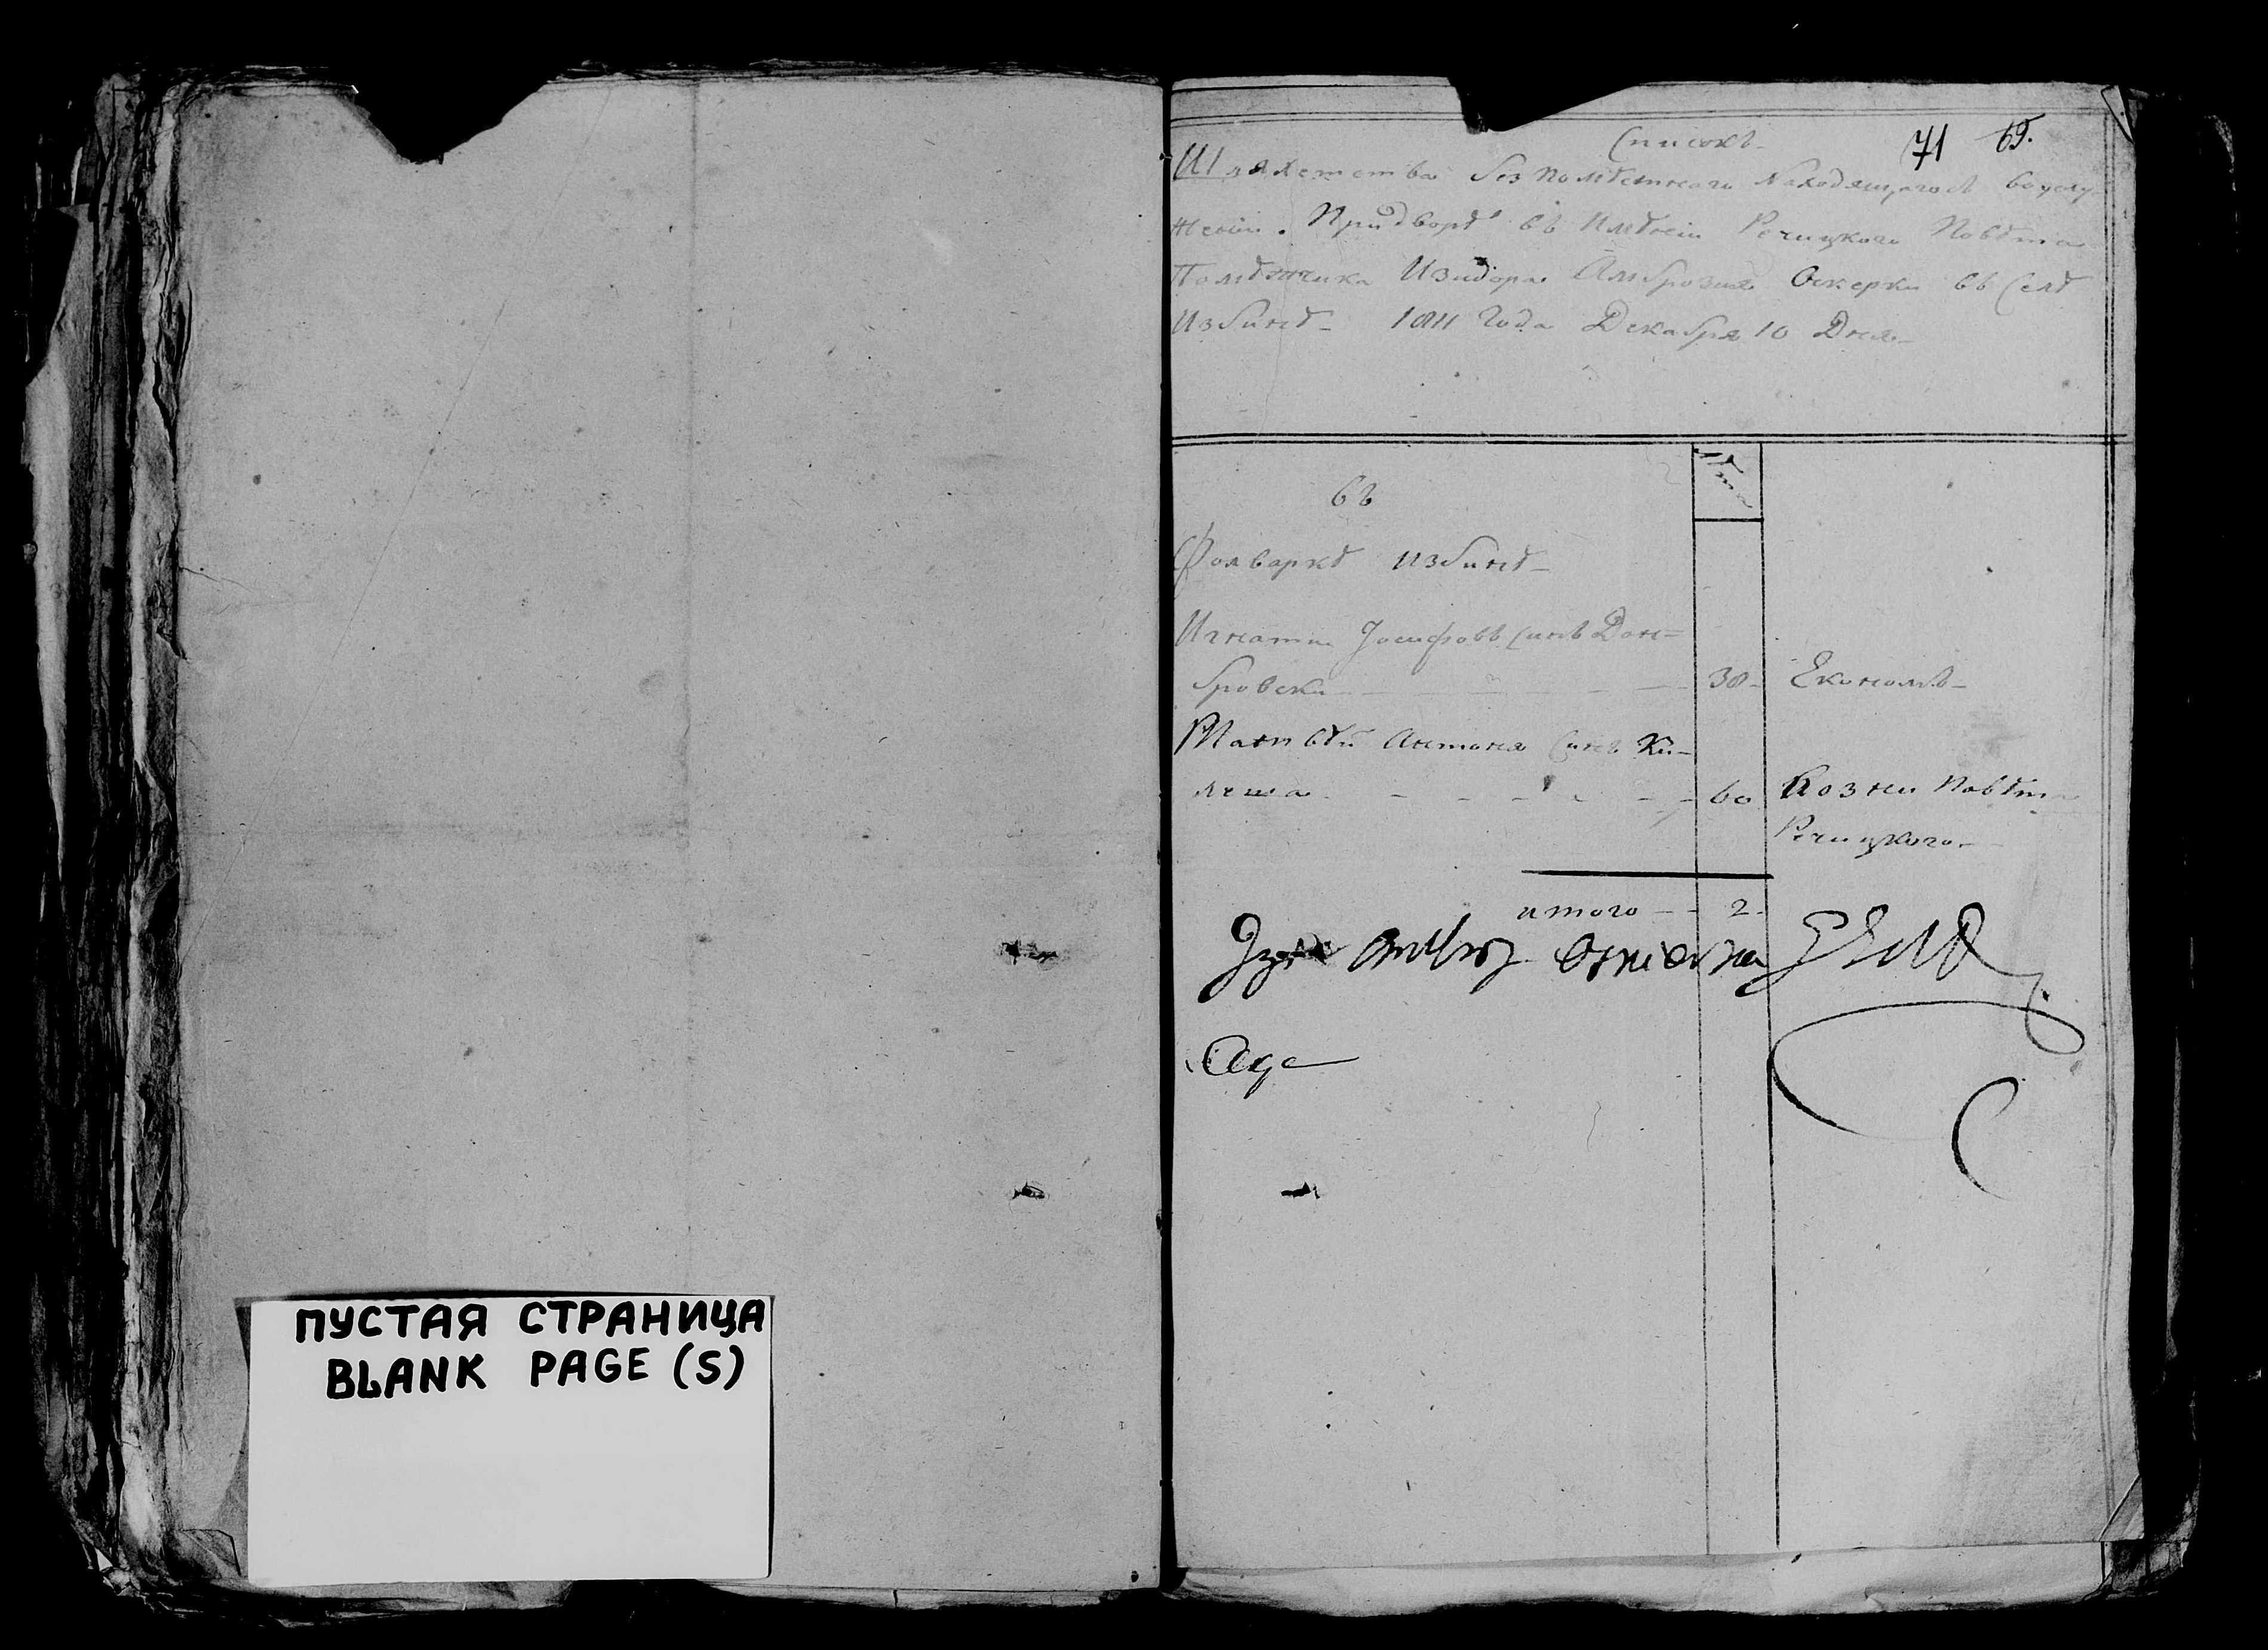 ПУСТАЯ СТРАНИЦА
BLANK PAGE (S)
71 69.
Списокъ
Шляхетства безпомѣстнаго Находящагося воуслу-
женіи. Придворѣ въ Имѣніи Речицкого Повѣта
Помѣтчика Изидора Амброзия Оскерки въ Селѣ
Избинѣ 1811 Года Декабря 10 Дня
Лѣта
въ
Фолваркѣ Избинѣ
Игнатии Іосифовъ Синъ Дом-
бровски 38 Економъ
Матвѣй Антоня Синъ Ки-
60 Возни Повѣта
Речицкого
итого 2.